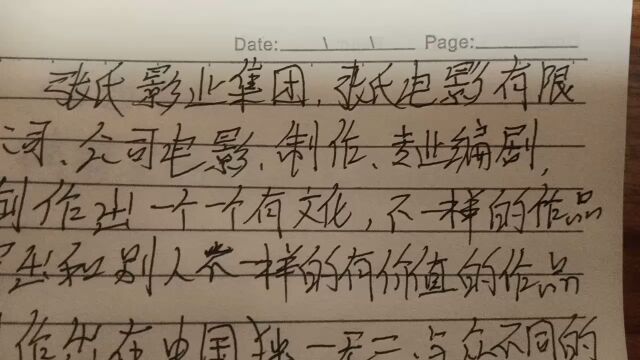 Date: \ \ Page:
张氏影业集团,张氏电影有限
公司、公司电影、制作、专业编剧,
创作出一个一个有文化,不一样的作品
出和别人不一样的有价值的作品
作出在中国独一无二与众不同的